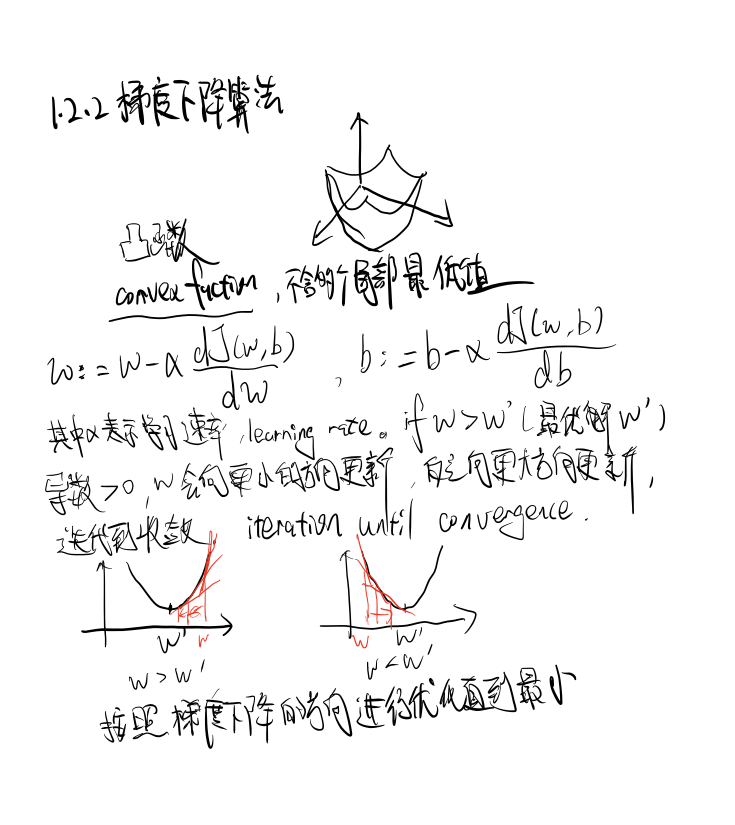 1.2.2 梯度下降算法
凸函数
convex fuction, 不含的个局部最低值
w := w - α dJ(w,b)/dw , b := b - α dJ(w,b)/db
其中α表示学习速率, learning rate。if w > w' (最优解 w')
导数 > 0, w会向更小的方向更新, 反之向更大方向更新,
迭代到收敛 iteration until convergence.
w' w w w'
w > w' w < w'
按照梯度下降的方向进行优化直到最小